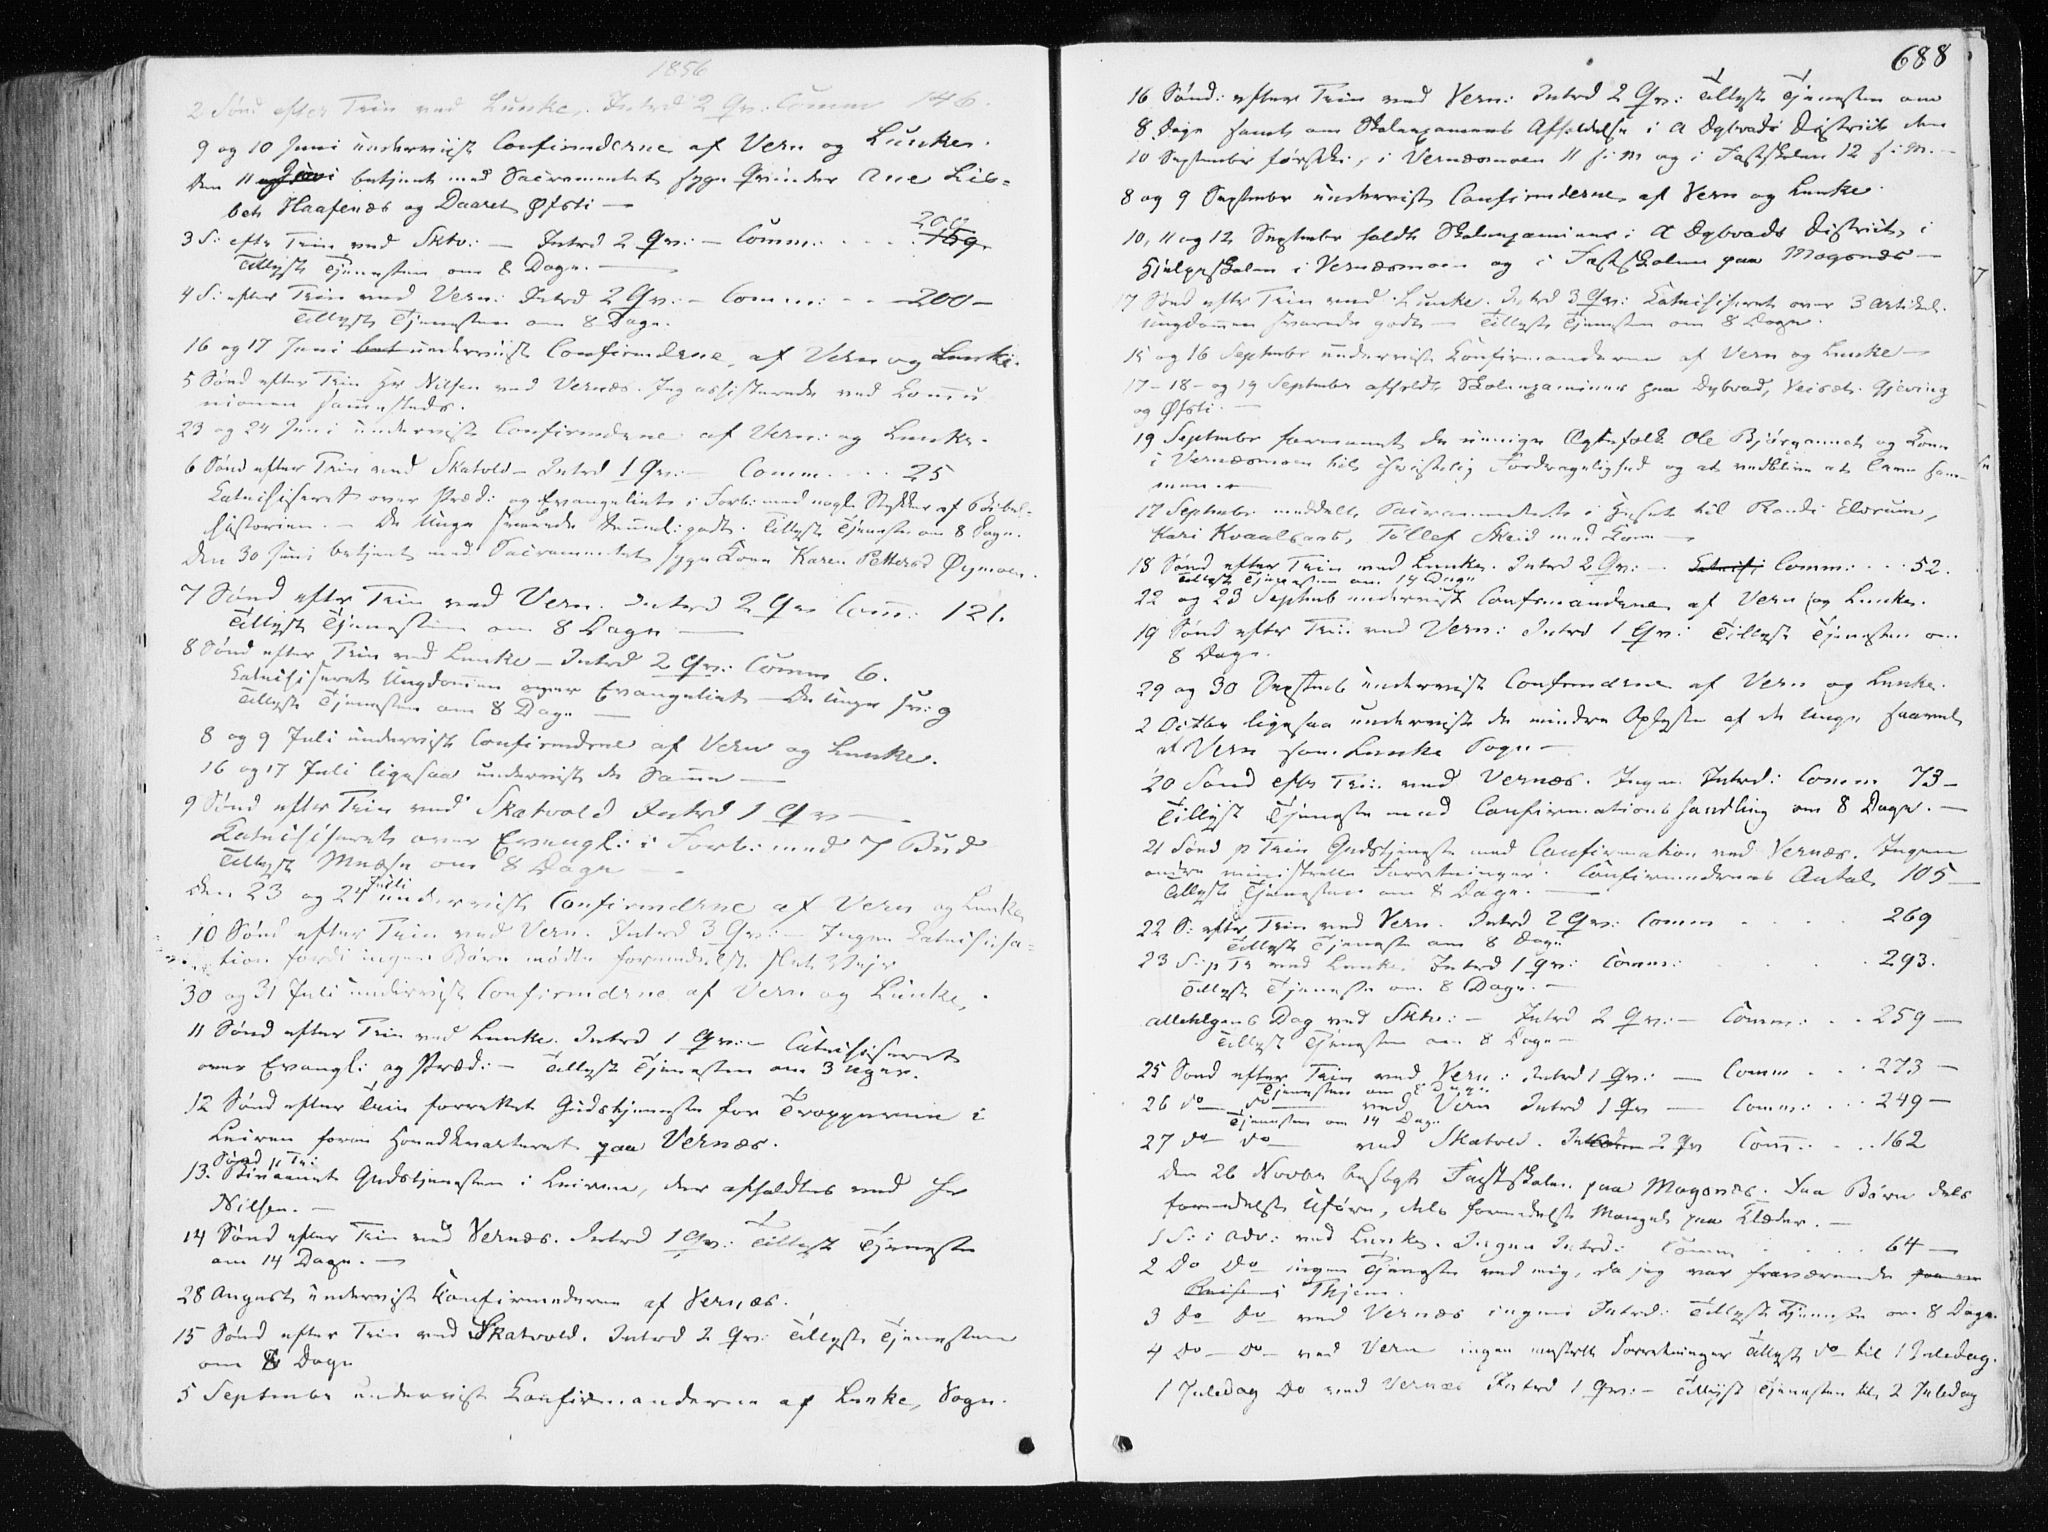 1856
2 Sønd efter Trin ved Lunke. Introd 2 Qv: Comm 146.
9 og 10 Juni underviist Confirmderne af Vern og Lunke.
Den 11 Juni betjent med Sacramentet syge Qvinder Ane Lis-
bet Haafenæs og Daaret Øfsti —
3 S: efter Trin ved Sktv: — Introd 2 Qv: — Comm: . . . 159
Tillyst Tjenesten om 8 Dage. —
4 S: efter Trin ved Vern: Introd 2 Qv: — Comm: - - 200 —
Tillyst Tjenesten om 8 Dage.
16 og 17 Juni underviist Confirmderne af Vern og Lunke.
5 Sønd efter Trin Hr Nilsen ved Vernæs. Jeg assisterede ved Commu
nionen sammesteds.
23 og 24 Juni underviist Confirmdene af Vern: og Lunke.
6 Sønd efter Trin ved Skatvold — Introd 1 Qv: — Comm. . . . 25
Catechiseret over Præd: og Evangeliets i Forb: med nogle Stykker af Bibel-
historien. — De Unge svarede temmel: godt. Tillyst Tjeneste om 8 Dage.
Den 30 Juni betjent med Sacramentet syge Kone Karen Pettersd Øymoen.
7 Sønd efter Trin ved Vern. Introd 2 Qv Com: 121.
Tillyst Tjenesten om 8 Dage —
8 Sønd efter Trin ved Lunke — Introd 2 Qv: Comm 6.
Catechiseret Ungdommen over Evangeliet — De Unge sv: g
Tillyst Tjenesten om 8 Dage —
8 og 9 Juli underviist Confirmdrne af Vern og Lunke.
16 og 17 Juli ligesaa underviist de Samme —
9 Sønd efter Trin ved Skatvold Introd 1 Qv —
Catechiseret over Evangl: i Forb: med 7 Bud
Tillyst Messe om 8 Dage —
Den 23 og 24 Juli underviist Confirmderne af Vern og Lunke
10 Sønd efter Trin ved Vern. Introd 3 Qv: — Ingen Catechisa-
tion fordi ingen Børn mødte formedelst slet Vejr
30 og 31 Juli underviist Confirmderne af Vern og Lunke.
11 Sønd efter Trin ved Lunke. Introd 1 Qv: — Catechiseret
over Evangl: og Præd: — Tillyst Tjenesten om 3 Uger.
12 Sønd efter Trin forrettet Gudstjeneste for Tropperne i
Leiren foran Hovedkvarteret paa Vernæs.
13. Sønd Tr: Gudstjenesten i Leiren, der afholdtes ved Hr
Nilsen. —
14 Sønd efter Trin ved Vernæs. Introd 1 Qv: Tillyst Tjeneste
om 14 Dage. —
28 August underviist Konfirmanderne af Vernæs.
15 Sønd efter Trin ved Skatvold. Introd 2 Qv: Tillyst Tjenesten
om 8 Dage
5 September underviist Konfirmanderne af Lunke Sogn.
688
16 Sønd: efter Trin ved Vern: Introd 2 Qv: Tillyst Tjenesten om
8 Dage samt om Skolexamens Afholdelse i A Dybvads District den
10 September førstk:, i Vernæsmoen 11 f:M og i Fastskolen 12 f:M. —
8 og 9 September underviist Confirmderne af Vern og Lunke.
10, 11 og 12 September holdt Skolexaminer i A Dybvads District, i
Hjelpeskolen i Vernæsmoen og i Fastskolen paa Mogsnæs —
17 Sønd efter Trin ved Lunke. Introd 3 Qv: Catechiseret over 3 Artikel.
Ungdommen svarede godt — Tillyst Tjenesten om 8 Dage.
15 og 16 September underviist Konfirmanderne af Vern og Lunke —
17 - 18 - og 19 September afholdt Skolexaminer paa Dybvad, Veisæt, Gjeving
og Øfsti. —
19 September formanet de uenige Ægtefolk Ole Bjørgannet og Kone
i Vernæsmoen til christelig Fordragelighed og at vedblive at leve sam-
men. —
17 September meddelt Sacramentet i Huset til Randi Elvrum,
Kari Kvaalsaat, Tollef Skeid med Kone —
18 Sønd efter Trin ved Lunke. Introd 2 Qv: — Comm: . . . 52.
Tillyst Tjenesten om 14 Dage
22 og 23 Septemb underviist Confirmanderne af Vern og Lunke.
19 Sønd efter Trin ved Vern: Introd 1 Qv: Tillyst Tjenesten om
8 Dage.
29 og 30 Septemb underviist Confirmderne af Vern og Lunke.
2 Octbr ligesaa underviist de mindre Oplyste af de Unge saavel
af Vern som Lunke Sogn —
20 Sønd eftr Trin ved Vernæs. Ingen Introd: Comm 73 —
Tillyst Tjeneste med Confirmationshandling om 8 Dage. —
21 Sønd p Trin Gudstjeneste med Confirmation ved Vernæs. Ingen
andre ministrelle Forretninger. Confirmandernes Antal 105 —
Tillyst Tjenesten om 8 Dage. —
22 S: efter Trin ved Vern. Introd 2 Qv: Comm . . . . . 269
Tillyst Tjeneste om 8 Dage
23 S: p Tr ved Lunke Introd 1 Qv: Comm: . . . . . 293.
Tillyst Tjeneste om 8 Dage. —
Allehlgens Dag ved Sktv: — Introd 2 Qv: — Comm: . . 259 —
Tillyst Tjenesten om 8 Dage —
25 Sønd efter Trin ved Vern: Introd 1 Qv: — Comm . . . 273 —
Tjenesten om 8 Dage
26 do — do — ved Vern Introd 1 Qv — Comm: . . . 249 —
Tjenesten om 14 Dage
27 do — do — ved Skatvold. 2 Qv Comm: . . . 162
Den 26 Novbr besøgt Fastskolen paa Mogsnæs. Faa Børn dels
formedelst Uføre, dels formedelst Mangel paa Klæder. —
1 S: i Adv: ved Lunke. Ingen Introd: Comm . . . . . 64 —
2 Do Do ingen Tjeneste ved mig, da jeg var fraværende
i Thjem.
3 do do ved Vernæs ingen Introd: Tillyst Tjeneste om 8 Dage.
4 Do — Do — ved Vern ingen mnstrelle Forretninger Tillyst do til 1 Juledag.
1 Juledag Do ved Vernæs Introd 1 Qv: — Tillyst Tjenesten til 2 Juledag